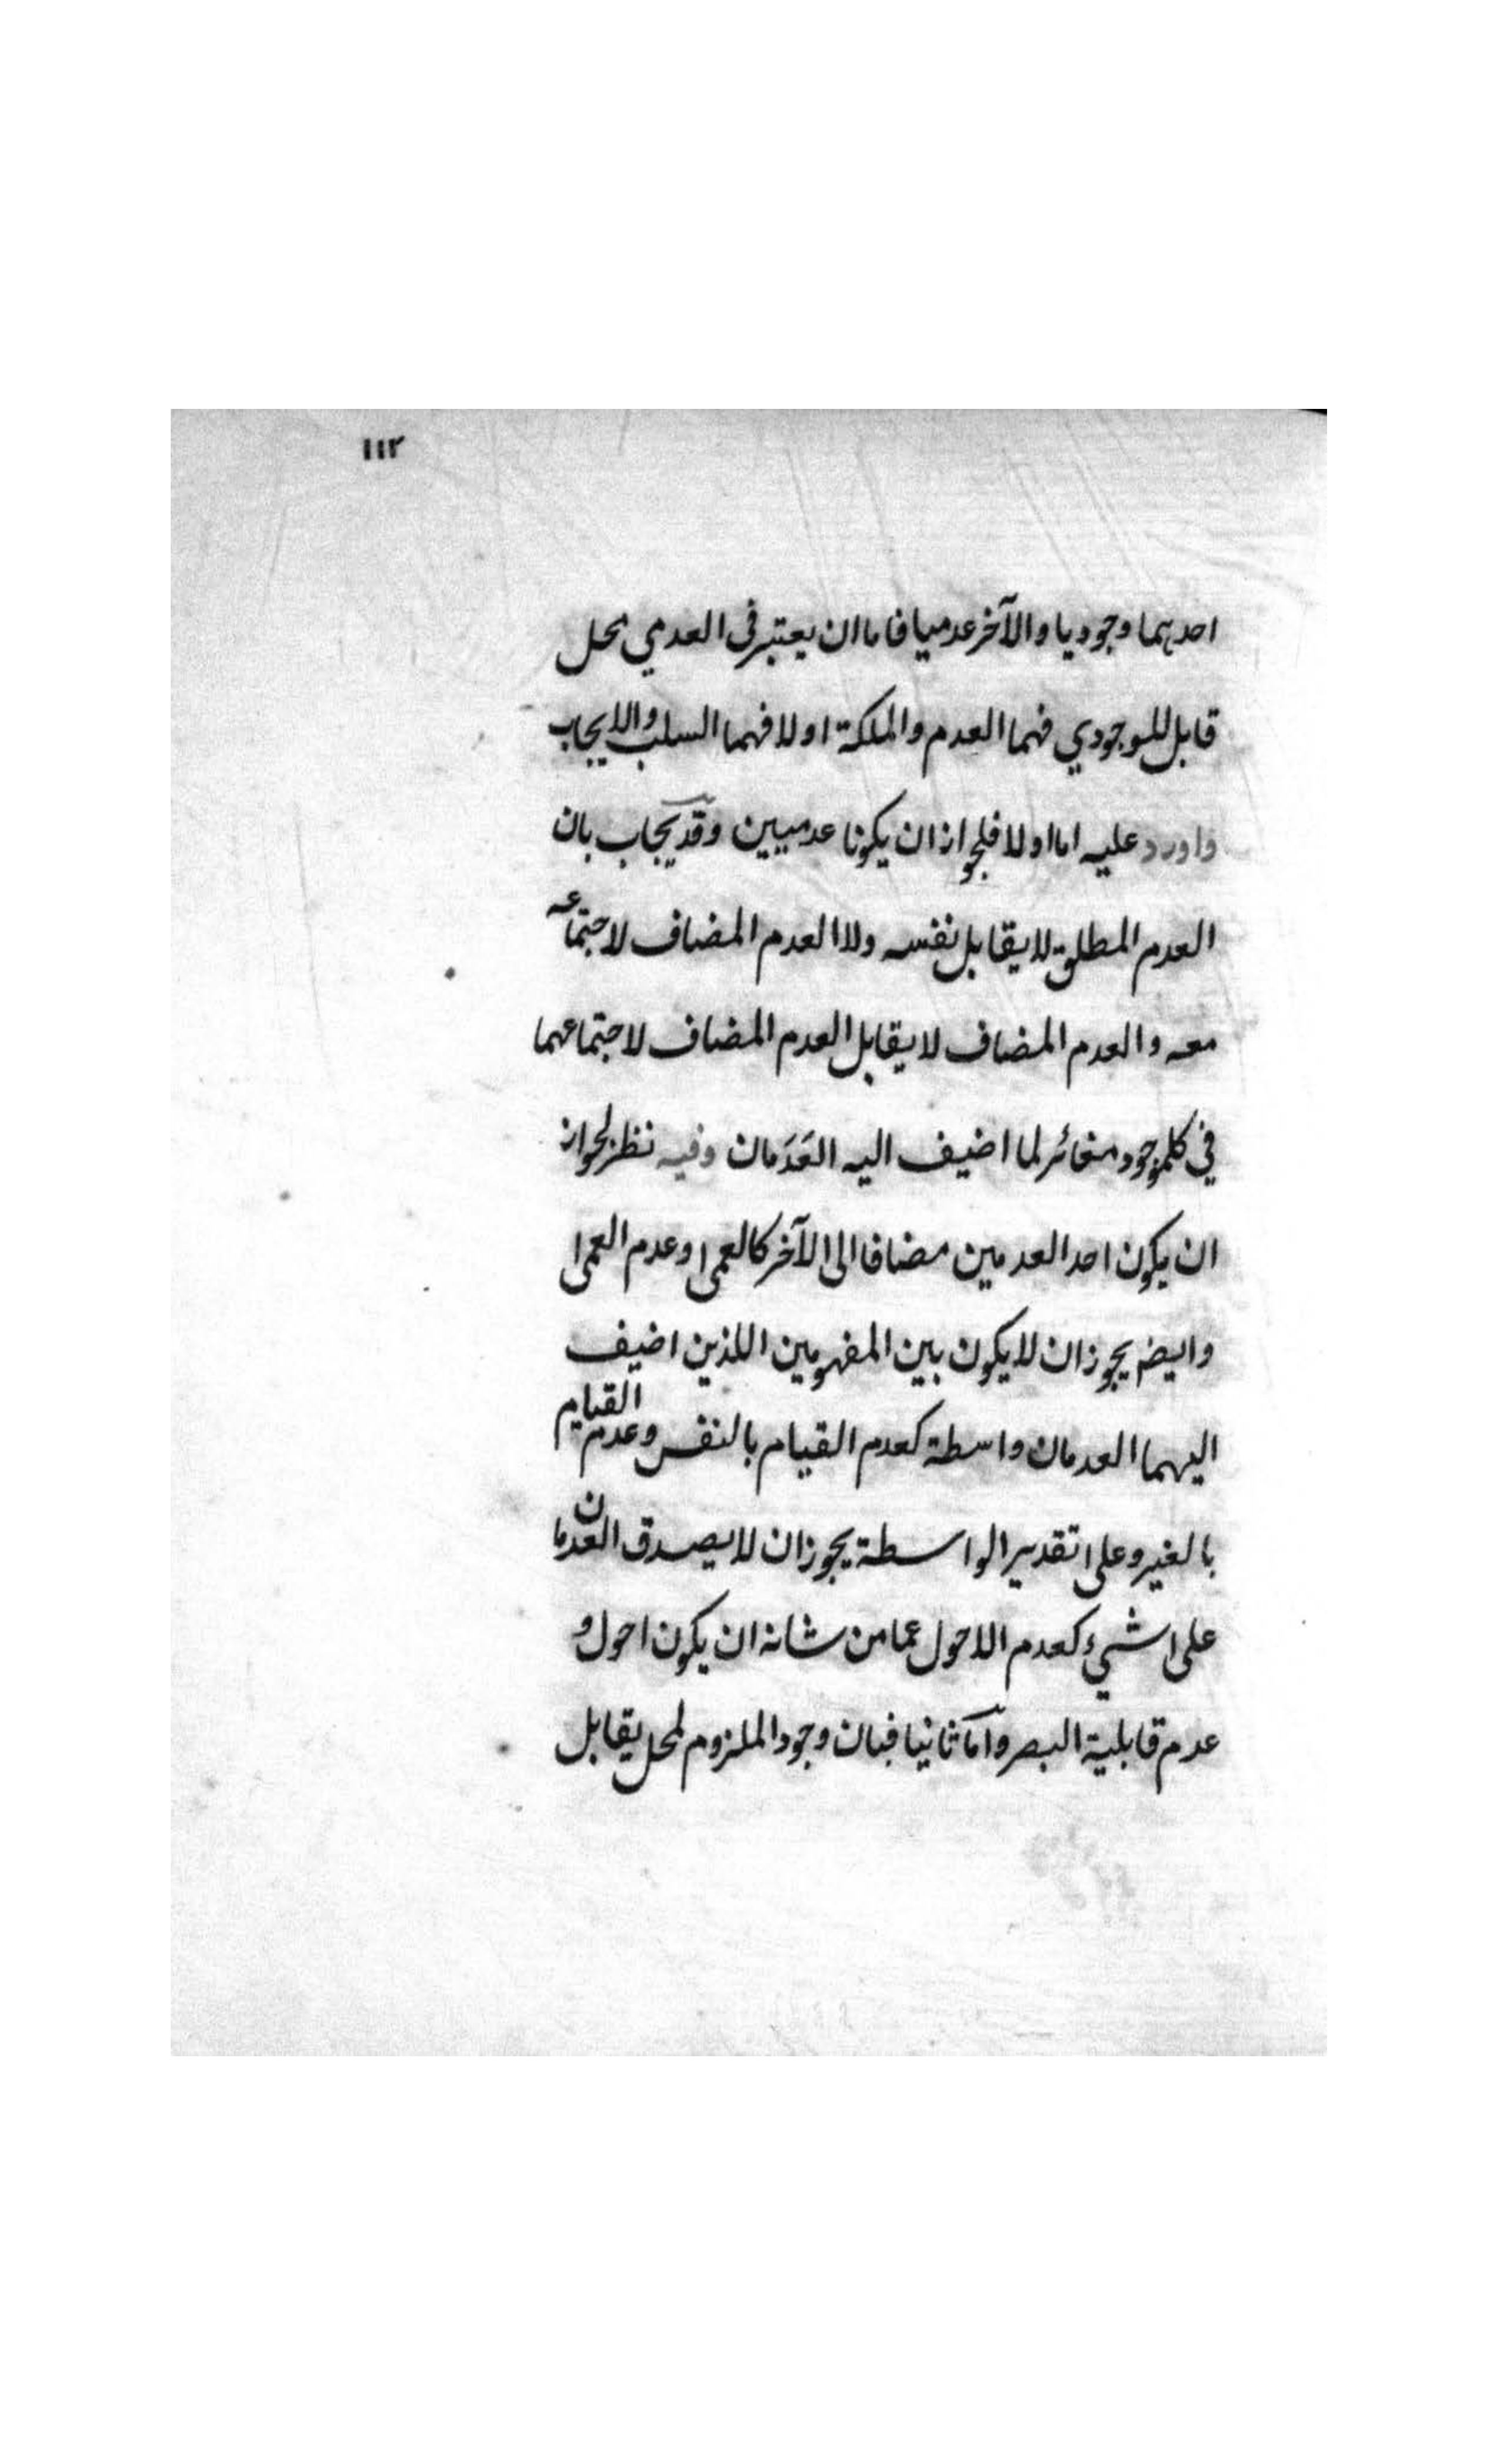 ١١٢
احديهما وجوديا والآخر عدميا فاما ان يعتبر في العدمي محل
قابل للوجودي فهما العدم والملكة او لا فهما السلب والايجاب
واورد عليه اما اولا فلجواز ان يكونا عدميين وقد يجاب بان
العدم المطلق لا يقابل نفسه ولا العدم المضاف لاجتماعه
معه والعدم المضاف لا يقابل العدم المضاف لاجتماعهما
في كلموجود مغائر لما اضيف اليه العَدَمان وفيه نظر لجواز
ان يكون احد العدمين مضافا الى الآخر كالعمى وعدم العمى
وايضم يجوز ان لا يكون بين المفهومين اللذين اضيف
اليهما العدمان واسطة كعدم القيام بالنفس وعدم القيام
بالغير وعلى تقدير الواسطة يجوز ان لا يصدق العدمان
على شيء كعدم الاحول عما من شانه ان يكون احول و
عدم قابلية البصر وآما ثانيا فبان وجود الملزوم لمحل يقابل